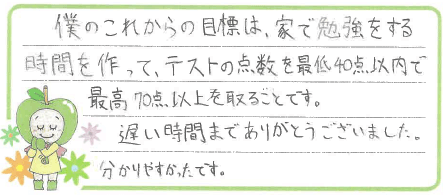 僕のこれからの目標は、家で勉強をする
時間を作って、テストの点数を最低40点以内で
最高70点以上を取ることです。
遅い時間までありがとうございました。
分かりやすかったです。